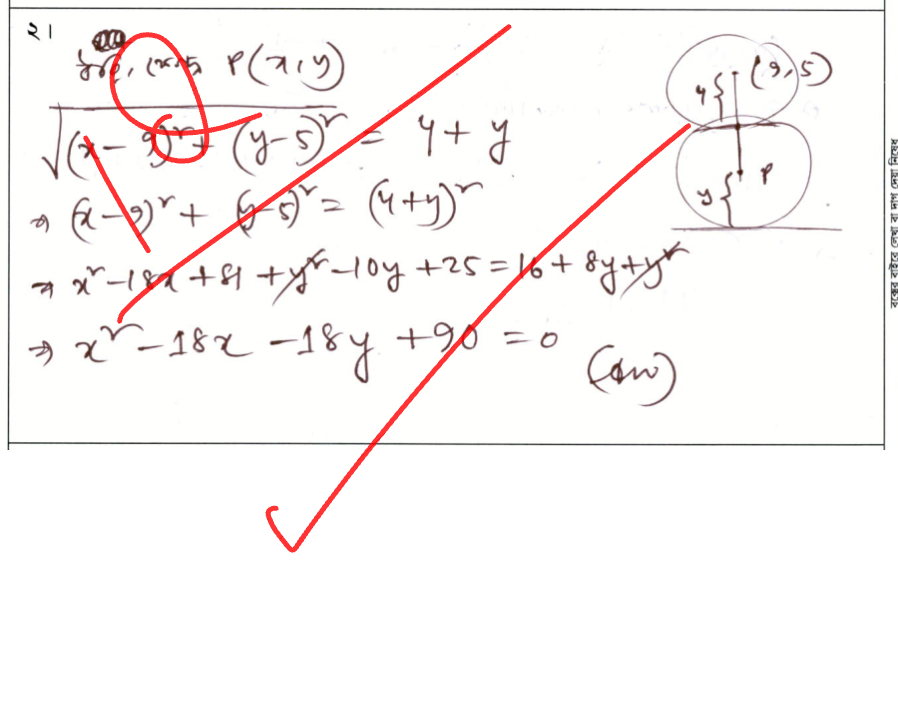 ২।
ধরি, কেন্দ্র P(x,y)
(9,5)
4
P
y
√((x-9)² + (y-5)²) = 4+y
⇒ (x-9)² + (y-5)² = (4+y)²
⇒ x² -18x +81 + y² -10y +25 = 16 + 8y + y²
⇒ x² -18x -18y +90 = 0
(Ans)
বক্সের বাইরে লেখা বা দাগ দেয়া নিষেধ